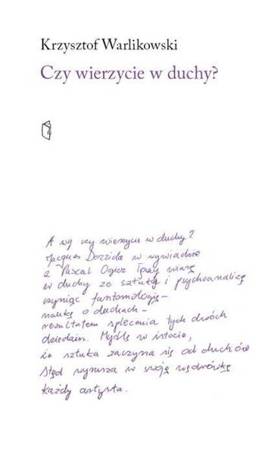 Krzysztof Warlikowski
Czy wierzycie w duchy?
A wy czy wierzycie w duchy?
Jacques Derrida w wywiadzie
z Pascal Ogier łączy wiarę
w duchy ze sztuką i psychoanalizą
fantomologię –
naukę o duchach –
rezultatem splecenia tych dwóch
dziedzin. Myślę w istocie,
że sztuka zaczyna się od duchów
Stąd wyrusza w swoją wędrówkę
każdy artysta.